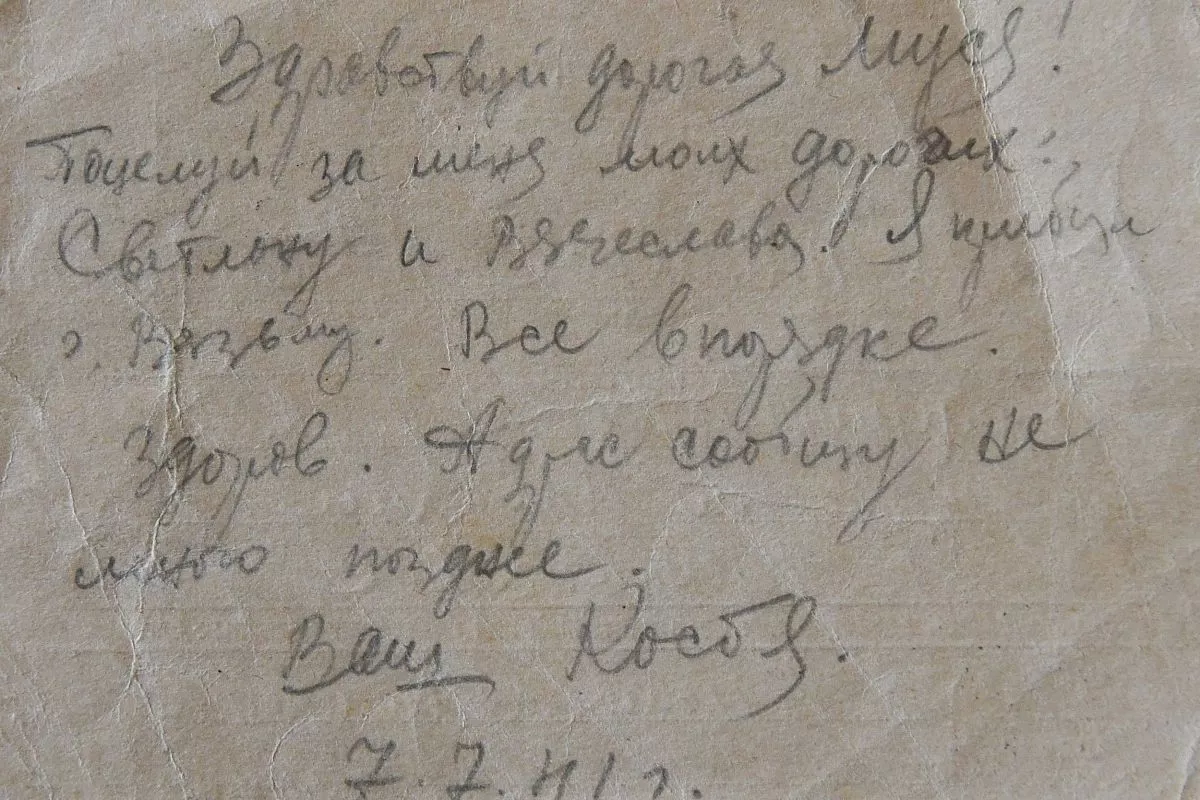 Здравствуй дорогая Муся!
Поцелуй за меня моих дорогих:
Светлану и Вячеслава. Я прибыл
г. Вязьму. Все впорядке.
Здоров. Адрес сообщу не
много позднее.
Ваш Костя.
7.7.41 г.